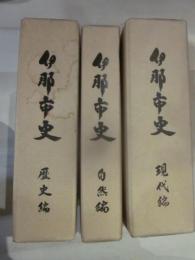 伊那市史 歴史編
伊那市史 自然編
伊那市史 現代編